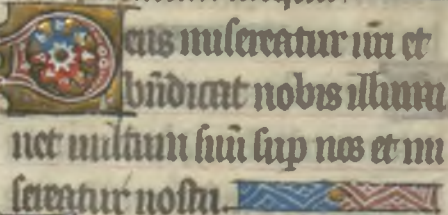 Deus misereatur nri et
bn̄dicat nobis illumi
net uultum suū sup nos et mi
sereatur nostri.